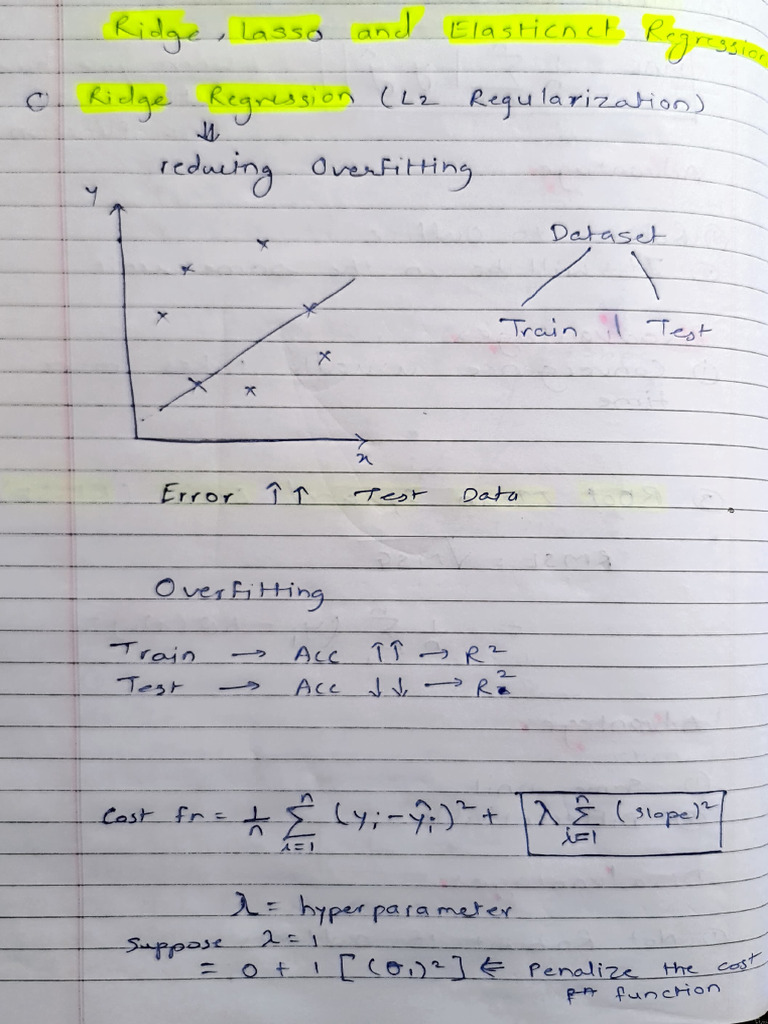 Ridge, Lasso and Elasticnet Regression
C) Ridge Regression (L2 Regularization)
⇓
reducing Overfitting
y
Dataset
Train | Test
x
Error ↑↑ Test Data
Overfitting
Train → Acc ↑↑ → R²
Test → Acc ↓↓ → R²
Cost fn = 1/n Σ_{i=1}^{n} (yi - ŷi)² + λ Σ_{i=1}^{n} (slope)²
λ = hyperparameter
Suppose λ = 1
= 0 + 1 [(θ₁)²] ⇐ Penalize the cost
function